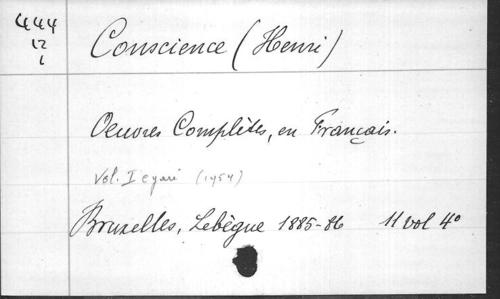 444
12
1
Conscience (Henri)
Oeuvres Complètes, en Français.
Vol. I egaré (1954)
Bruxelles, Lebègue 1885-86 11 vol 4°